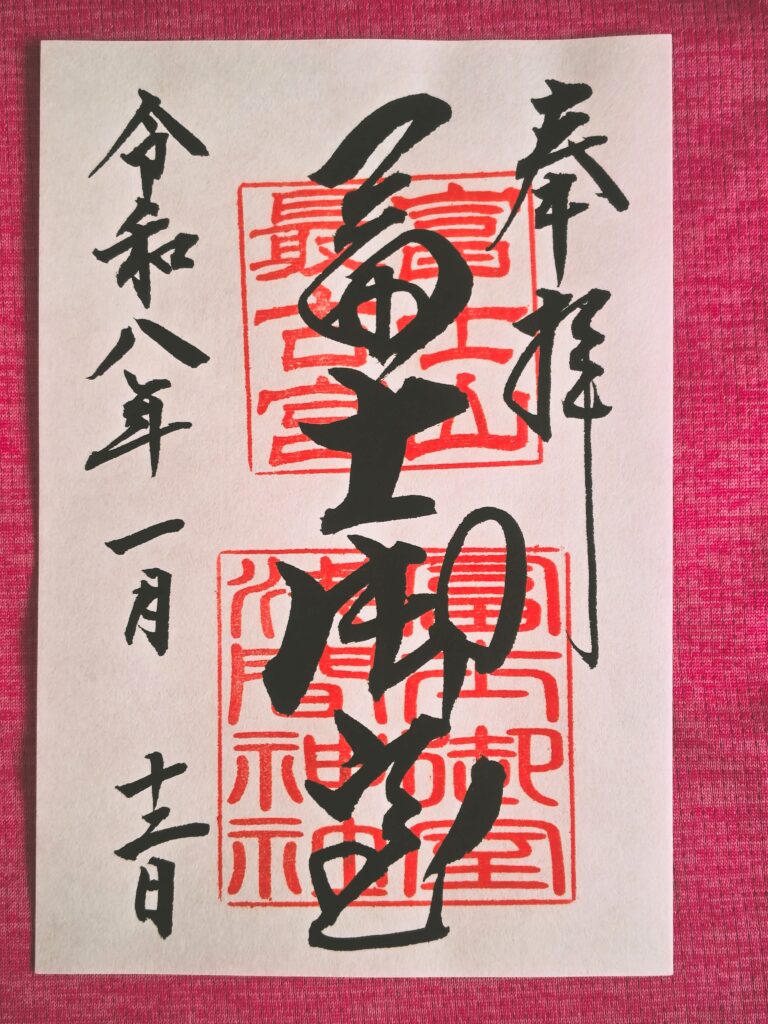 奉拝
冨士御室
富士山
最古宮
冨士御室
浅間神社
令和八年一月十三日